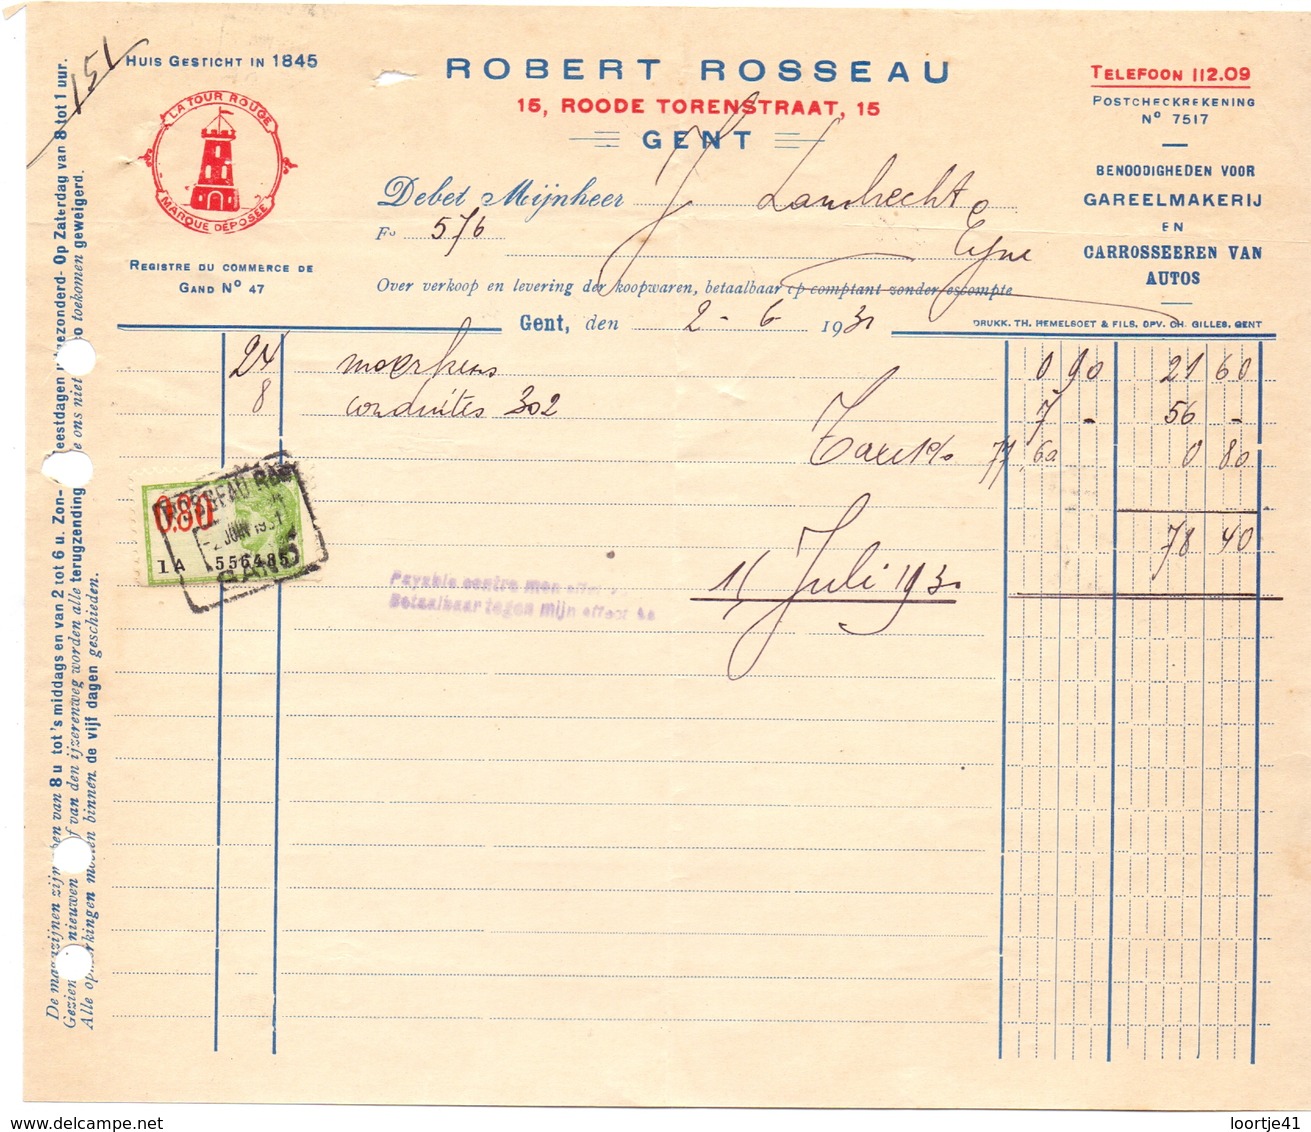 151
HUIS GESTICHT IN 1845
LA TOUR ROUGE
MARQUE DÉPOSÉE
REGISTRE DU COMMERCE DE
GAND Nº 47
ROBERT ROSSEAU
15, ROODE TORENSTRAAT, 15
GENT
TELEFOON 112.09
POSTCHECKREKENING
Nº 7517
BENOODIGHEDEN VOOR
GAREELMAKERIJ
EN
CARROSSEEREN VAN
AUTOS
Debet Mijnheer J. Lambrecht
Fº 576 Eyne
Over verkoop en levering der koopwaren, betaalbaar op comptant zonder escompte
Gent, den 2-6 1931
DRUKK. TH. HEMELSOET & FILS, OPV. CH. GILLES, GENT
24 moerkens 0 90 21 60
8 conduites 302 7 - 56 -
Taxe 1% 77 60 0 80
78 40
0.80
ROSSEAU ROB
2 JUIN 1931
1A 556485
GAND
Payable contre mon
Betaalbaar tegen mijn effect
Juli 193
De magazijnen zijn open van 8 u tot 's middags en van 2 tot 6 u. Zon- feestdagen uitgezonderd- Op Zaterdag van 8 tot 1 uur.
Gezien nieuwen van den ijzerenweg worden alle terugzending ons niet toekomen geweigerd.
Alle opmerkingen moeten binnen de vijf dagen geschieden.
loortje41